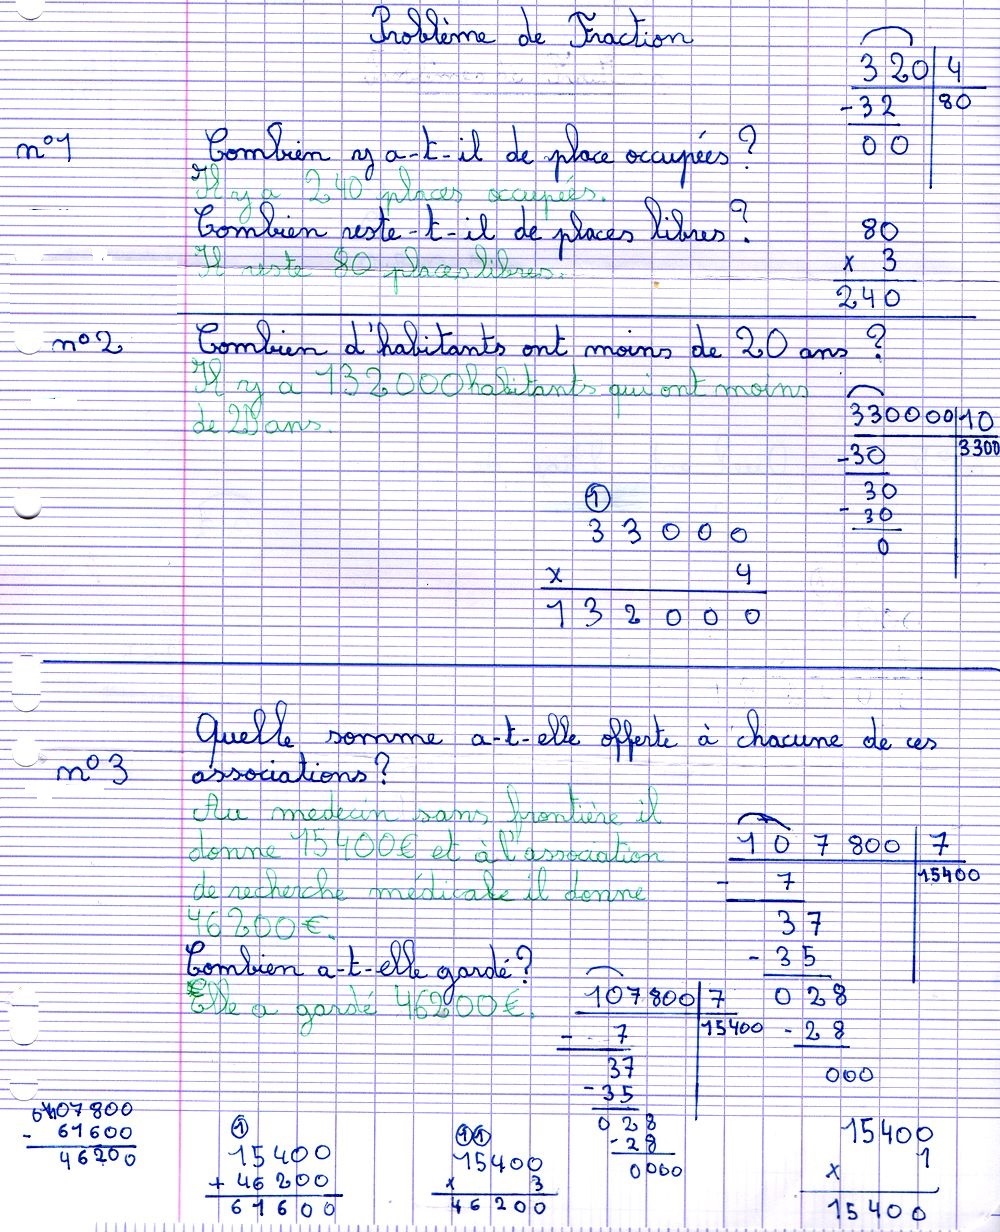 Problème de Fraction
320 4
-32 80
00
n°1 Combien y a-t-il de place occupées ?
Il y a 240 places occupées.
Combien reste-t-il de places libres ?
Il reste 80 places libres.
80
x 3
240
n°2 Combien d'habitants ont moins de 20 ans ?
Il y a 132000 habitants qui ont moins
de 20 ans.
330000 10
-30 3300
30
-30
0
1
33000
x 4
132000
n°3 Quelle somme a-t-elle offerte à chacune de ces
associations ?
Au medecin sans frontière il
donne 15400€ et à l'association
de recherche médicale il donne
46200€.
Combien a-t-elle gardé ?
Elle a gardé 46200€.
107800 7
- 7 15400
37
-35
028
-28
000
107800 7
- 7 15400
37
-35
028
-28
0000
107800
- 61600
46200
1
15400
+ 46200
61600
11
15400
x 3
46200
15400
x 1
15400